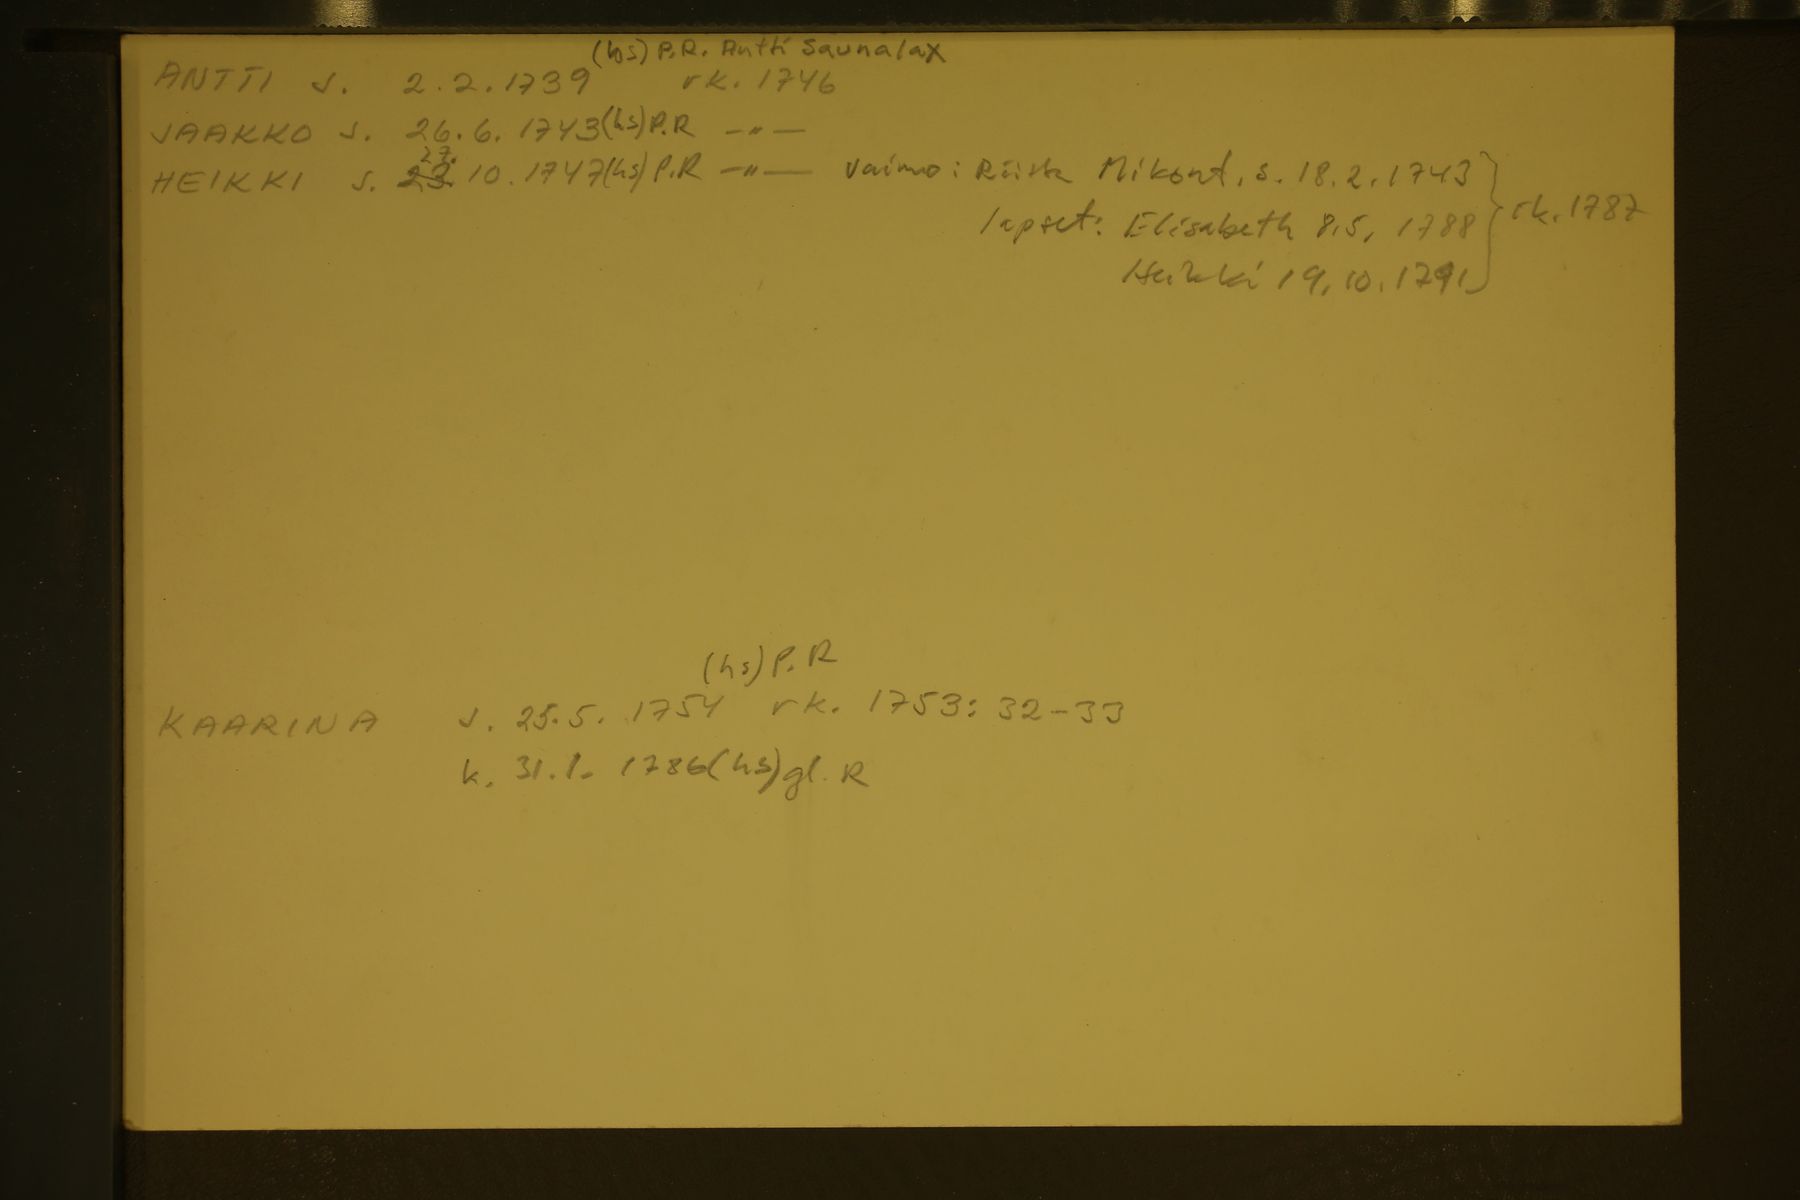 (hs) P.R. Antti Saunalax
ANTTI s. 2.2.1739 rk. 1746
JAAKKO s. 26.6.1743 (hs) P.R —"—
27.
HEIKKI s. 23. 10.1747 (hs) P.R —"— vaimo: Riitta Mikont. s. 18.2.1743
lapset: Elisabeth 8.5. 1788 rk. 1787
Heikki 19.10.1791
(hs) P.R
KAARINA s. 25.5. 1754 rk. 1753: 32-33
k. 31.1. 1786 (hs) gl. R